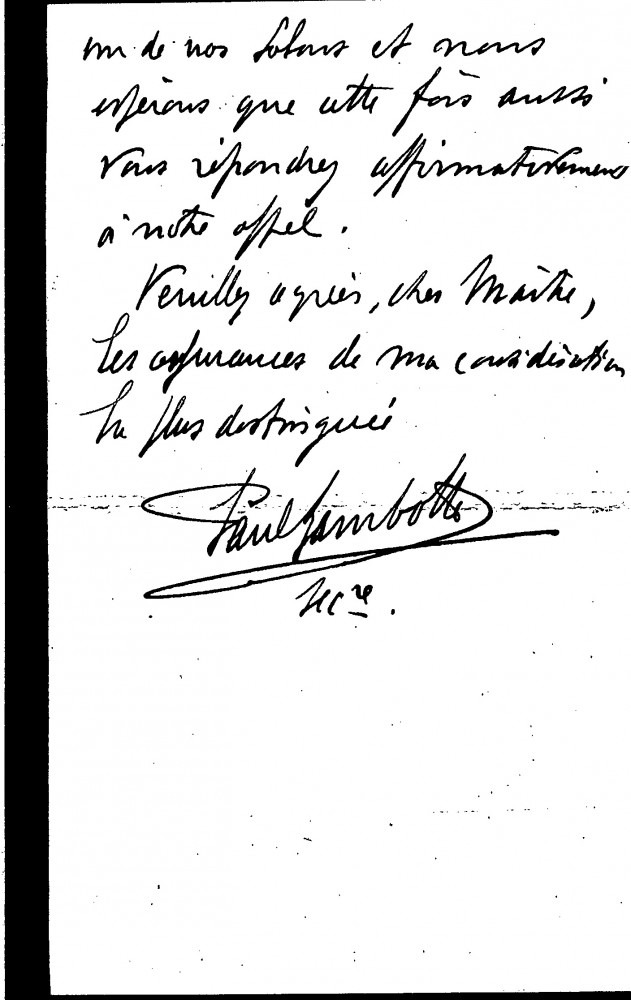 un de nos Salons et nous
espérons que cette fois aussi
vous répondrez affirmativement
à notre appel.
Veuillez agréer, cher Maître,
les assurances de ma considération
la plus distinguée
Paul Lambotte
Secre.